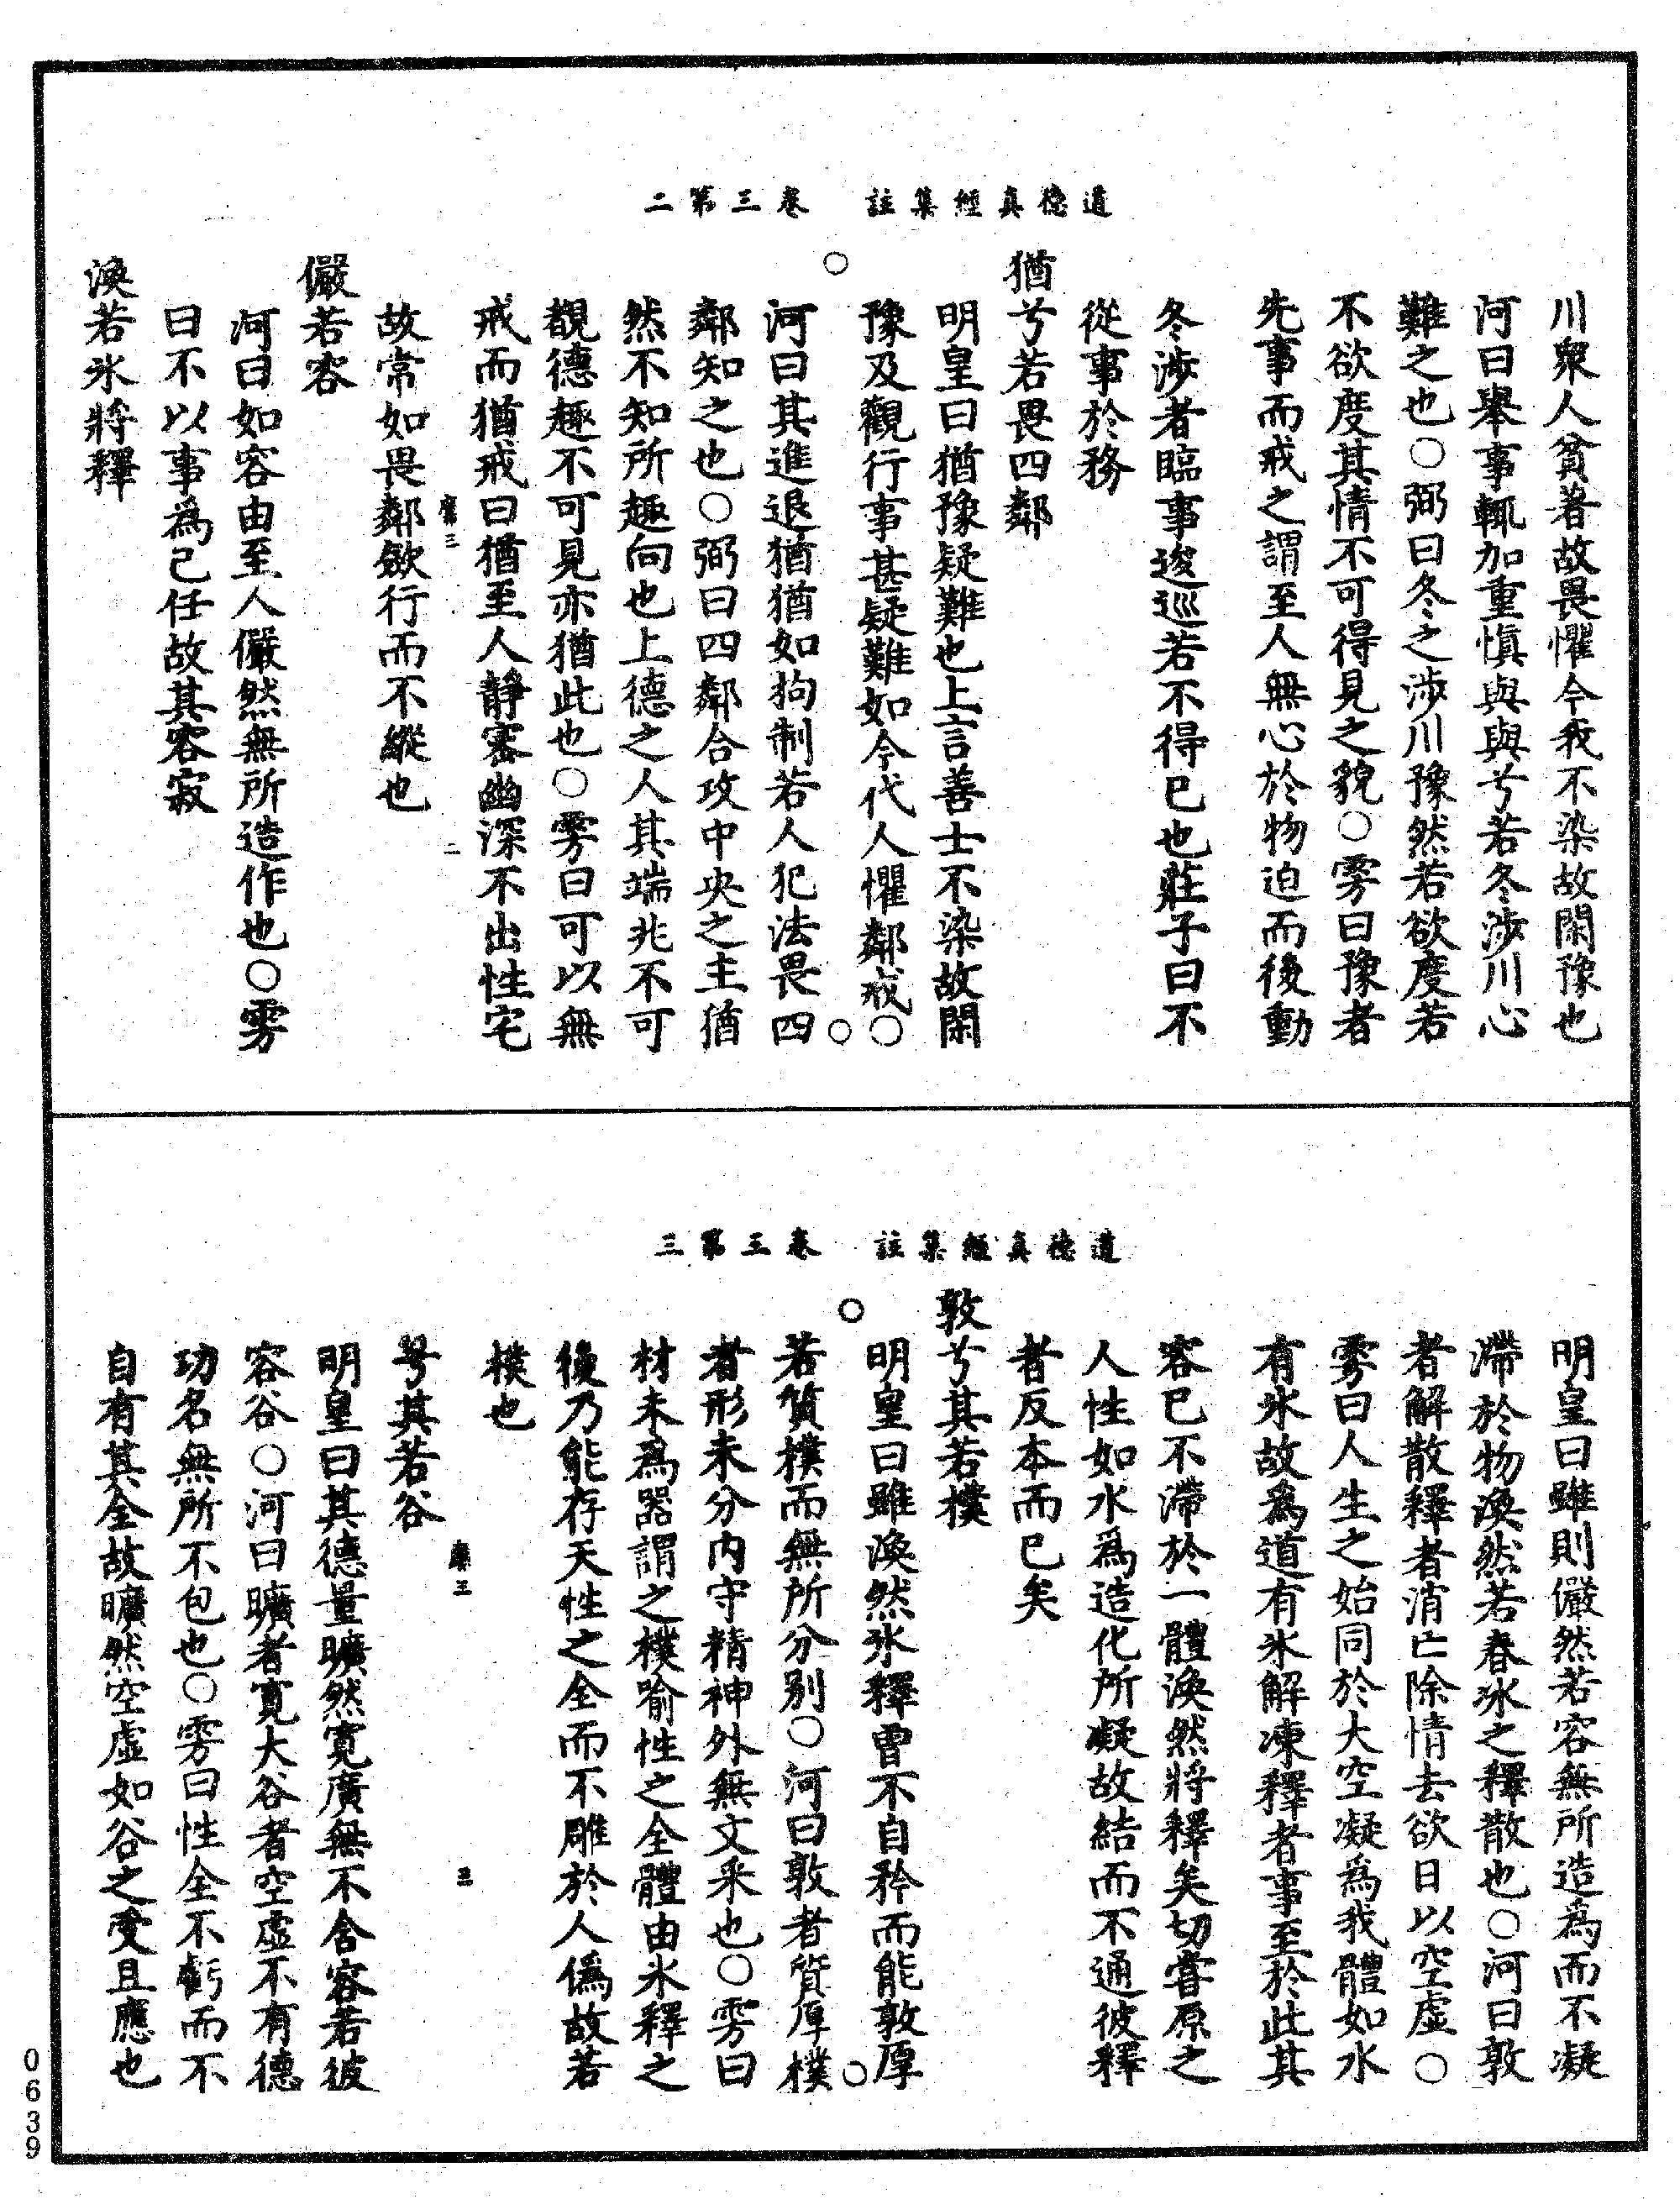 道德真經集註　卷三第二
川衆人貧著故畏懼今我不染故閑豫也
河曰舉事輒加重慎與與兮若冬涉川心
難之也○弼曰冬之涉川豫然若欲度若
不欲度其情不可得見之貌○雱曰豫者
先事而戒之謂至人無心於物迫而後動
冬涉者臨事逡巡若不得已也莊子曰不
從事於務
猶兮若畏四鄰
明皇曰猶豫疑難也上言善士不染故閑
豫及觀行事甚疑難如今代人懼鄰戒○
河曰其進退猶猶如拘制若人犯法畏四
鄰知之也○弼曰四鄰合攻中央之主猶
然不知所趣向也上德之人其端兆不可
覩德趣不可見亦猶此也○雱曰可以無
戒而猶戒曰猶至人靜審幽深不出性宅
三　二
故常如畏鄰斂行而不縱也
儼若客
河曰如客由至人儼然無所造作也○雱
曰不以事為己任故其容寂
渙若冰將釋
道德真經集註　卷三第三
明皇曰雖則儼然若容無所造為而不凝
滯於物渙然若春冰之釋散也○河曰敦
者解散釋者消亡除情去欲日以空虛○
雱曰人生之始同於大空凝為我體如水
有冰故為道有冰解凍釋者事至於此其
容已不滯於一體渙然將釋矣切嘗原之
人性如水為造化所凝故結而不通彼釋
者反本而已矣
敦兮其若樸
明皇曰雖渙然冰釋曾不自矜而能敦厚
若質樸而無所分別○河曰敦者質厚樸
者形未分內守精神外無文采也○雱曰
材未為器謂之樸喻性之全體由冰釋之
後乃能存天性之全而不雕於人偽故若
樸也
三　三
曠兮其若谷
明皇曰其德量曠然寬廣無不含容若彼
容谷○河曰曠者寬大谷者空虛不有德
功名無所不包也○雱曰性全不虧而不
自有其全故曠然空虛如谷之受且應也
0639